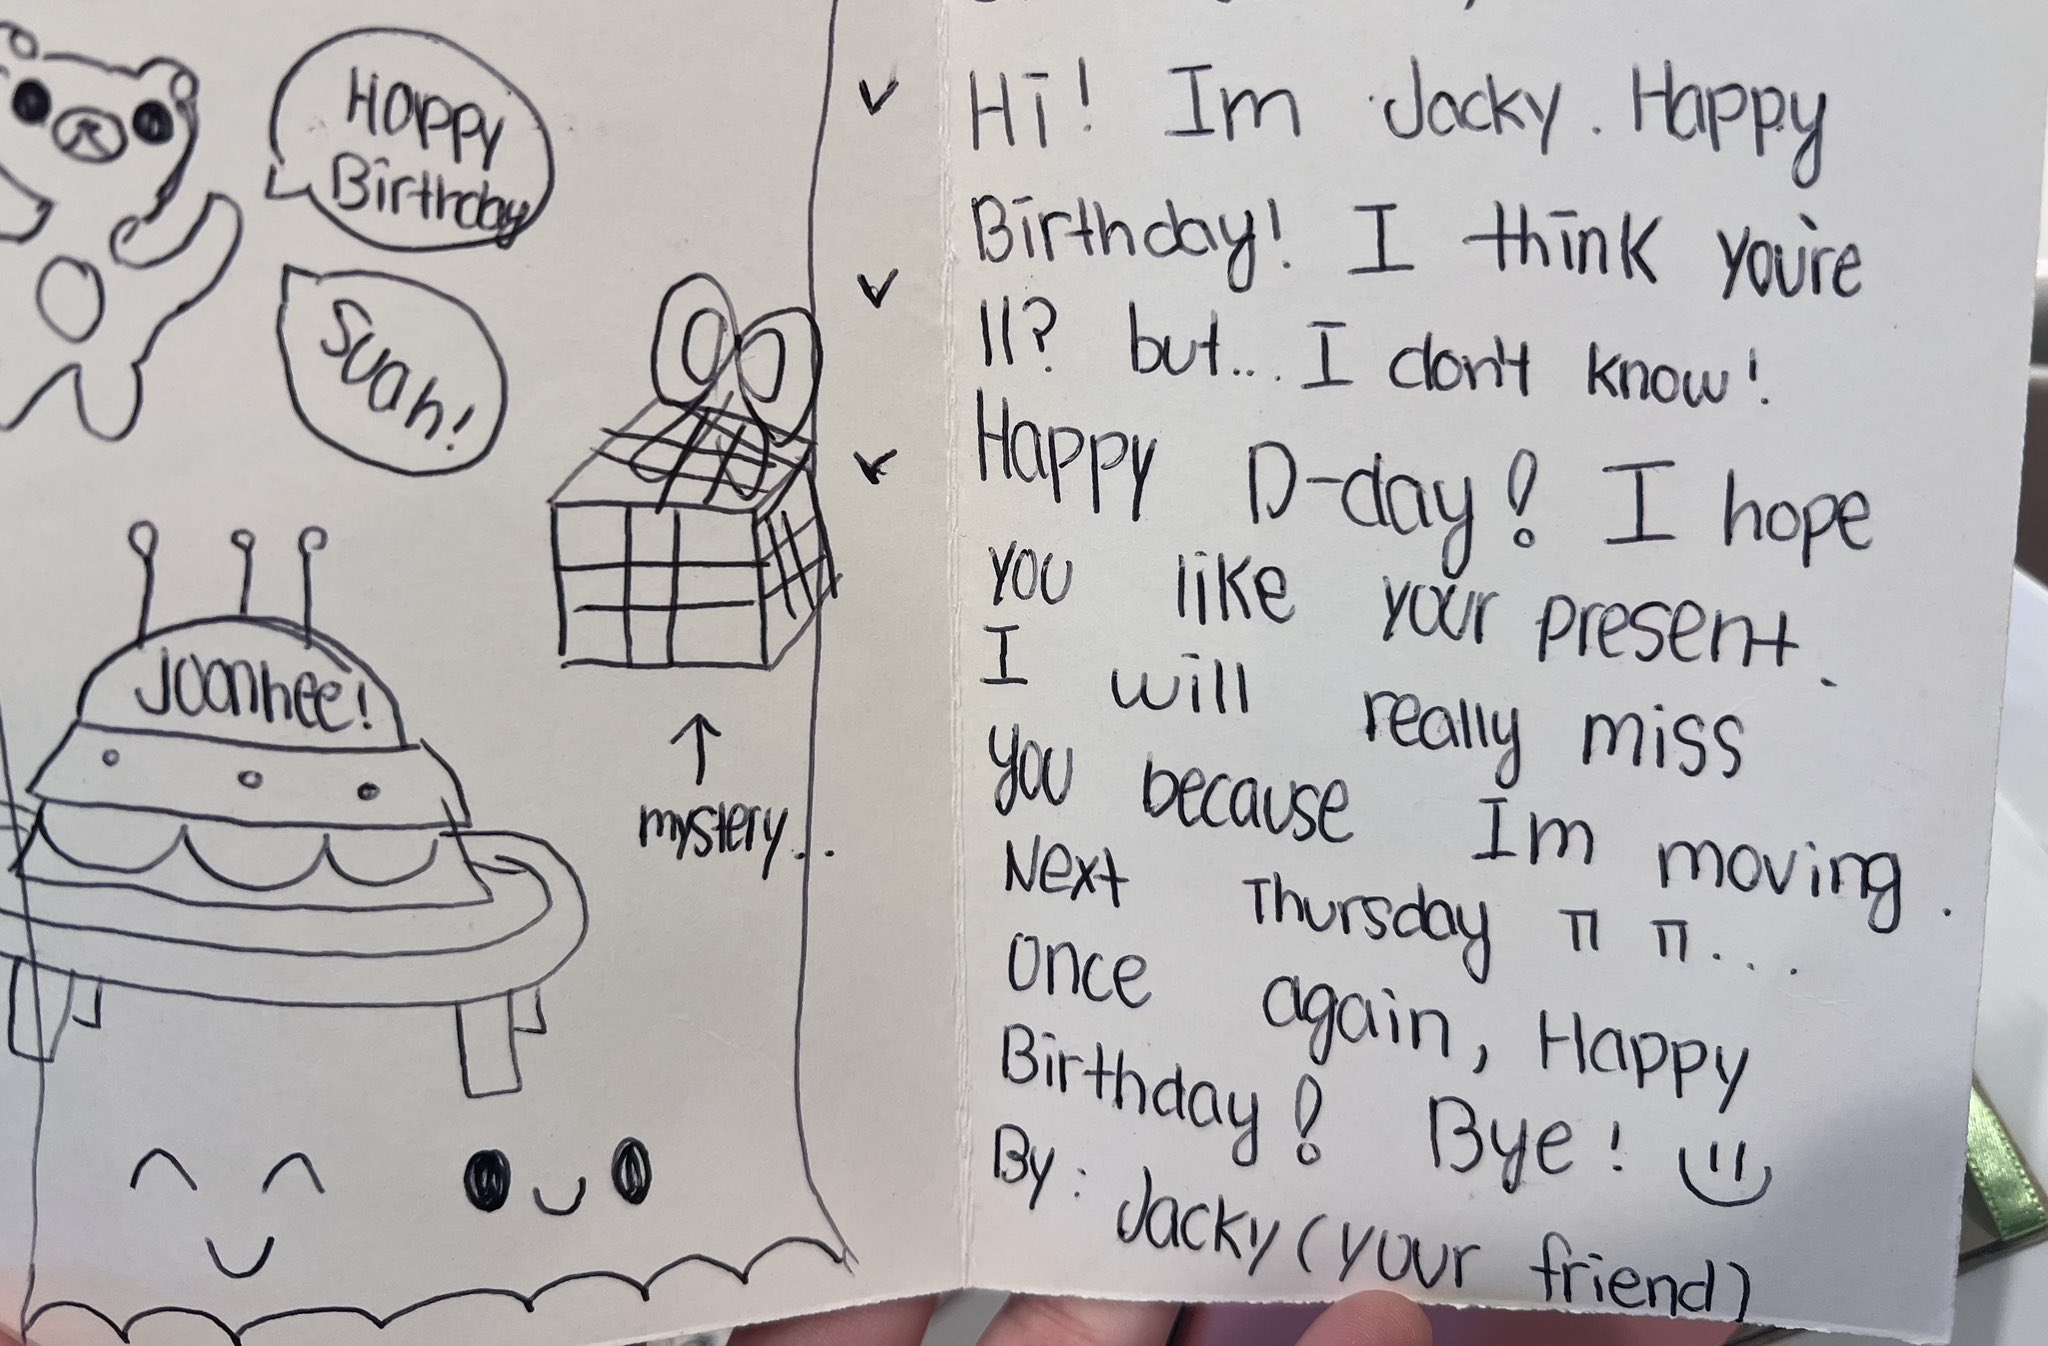 Happy
Birthday
Suah!
Joanhee!
mystery...
Hi! Im Jacky. Happy
Birthday! I think you're
11? but.... I don't know!
Happy D-day! I hope
you like your present.
I will really miss
you because Im moving.
Next Thursday ㅠ ㅠ...
Once again, Happy
Birthday! Bye!
By: Jacky (your friend)